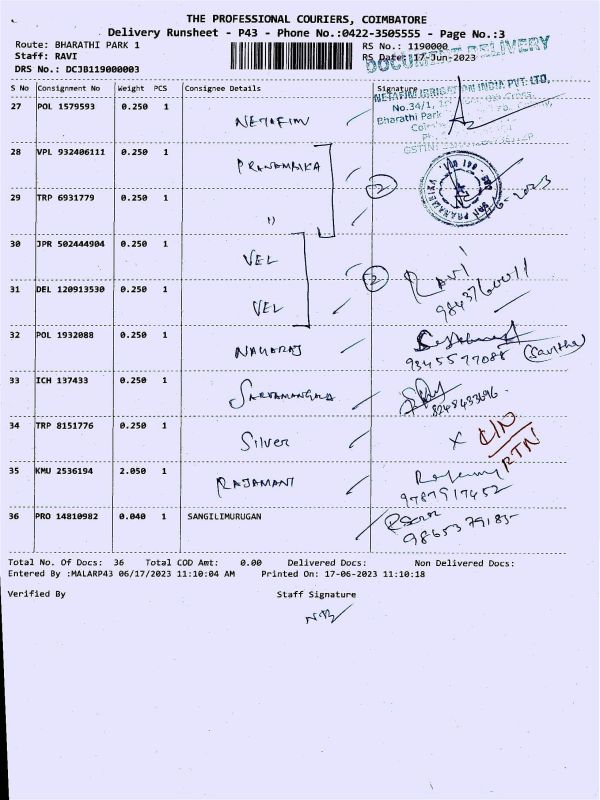 THE PROFESSIONAL COURIERS, COIMBATORE
Delivery Runsheet - P43 - Phone No.:0422-3505555 - Page No.:3
Route: BHARATHI PARK 1 RS No.: 1190000
Staff: RAVI RS Date: 17-Jun-2023
DRS No.: DCJB119000003
DOCUMENT DELIVERY
S No Consignment No Weight PCS Consignee Details Signature
NETAFIM IRRIGATION INDIA PVT. LTD.
No.34/1,
Bharathi Park
27 POL 1579593 0.250 1 NETAFIM
28 VPL 932406111 0.250 1 PRANAMBIKA
2
29 TRP 6931779 0.250 1 11
30 JPR 502444904 0.250 1 VEL
2 Ravi
31 DEL 120913530 0.250 1 VEL 9843760011
32 POL 1932088 0.250 1 NAGARAJ
9345577088 Savitha
33 ICH 137433 0.250 1 SARVAMANGALA
8248433696
34 TRP 8151776 0.250 1 Silver X C/N
RTN
35 KMU 2536194 2.050 1 RAJAMANI
9787917452
36 PRO 14810982 0.040 1 SANGILIMURUGAN
9865379185
Total No. Of Docs: 36 Total COD Amt: 0.00 Delivered Docs: Non Delivered Docs:
Entered By :MALARP43 06/17/2023 11:10:04 AM Printed On: 17-06-2023 11:10:18
Verified By Staff Signature